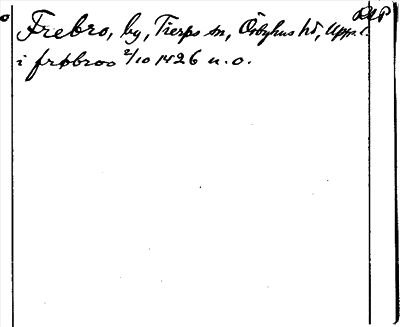 DMP
Frebro, by, Tierps sn, Örbyhus hd, Upps. l.
i frøbroo 2/10 1426 u. o.